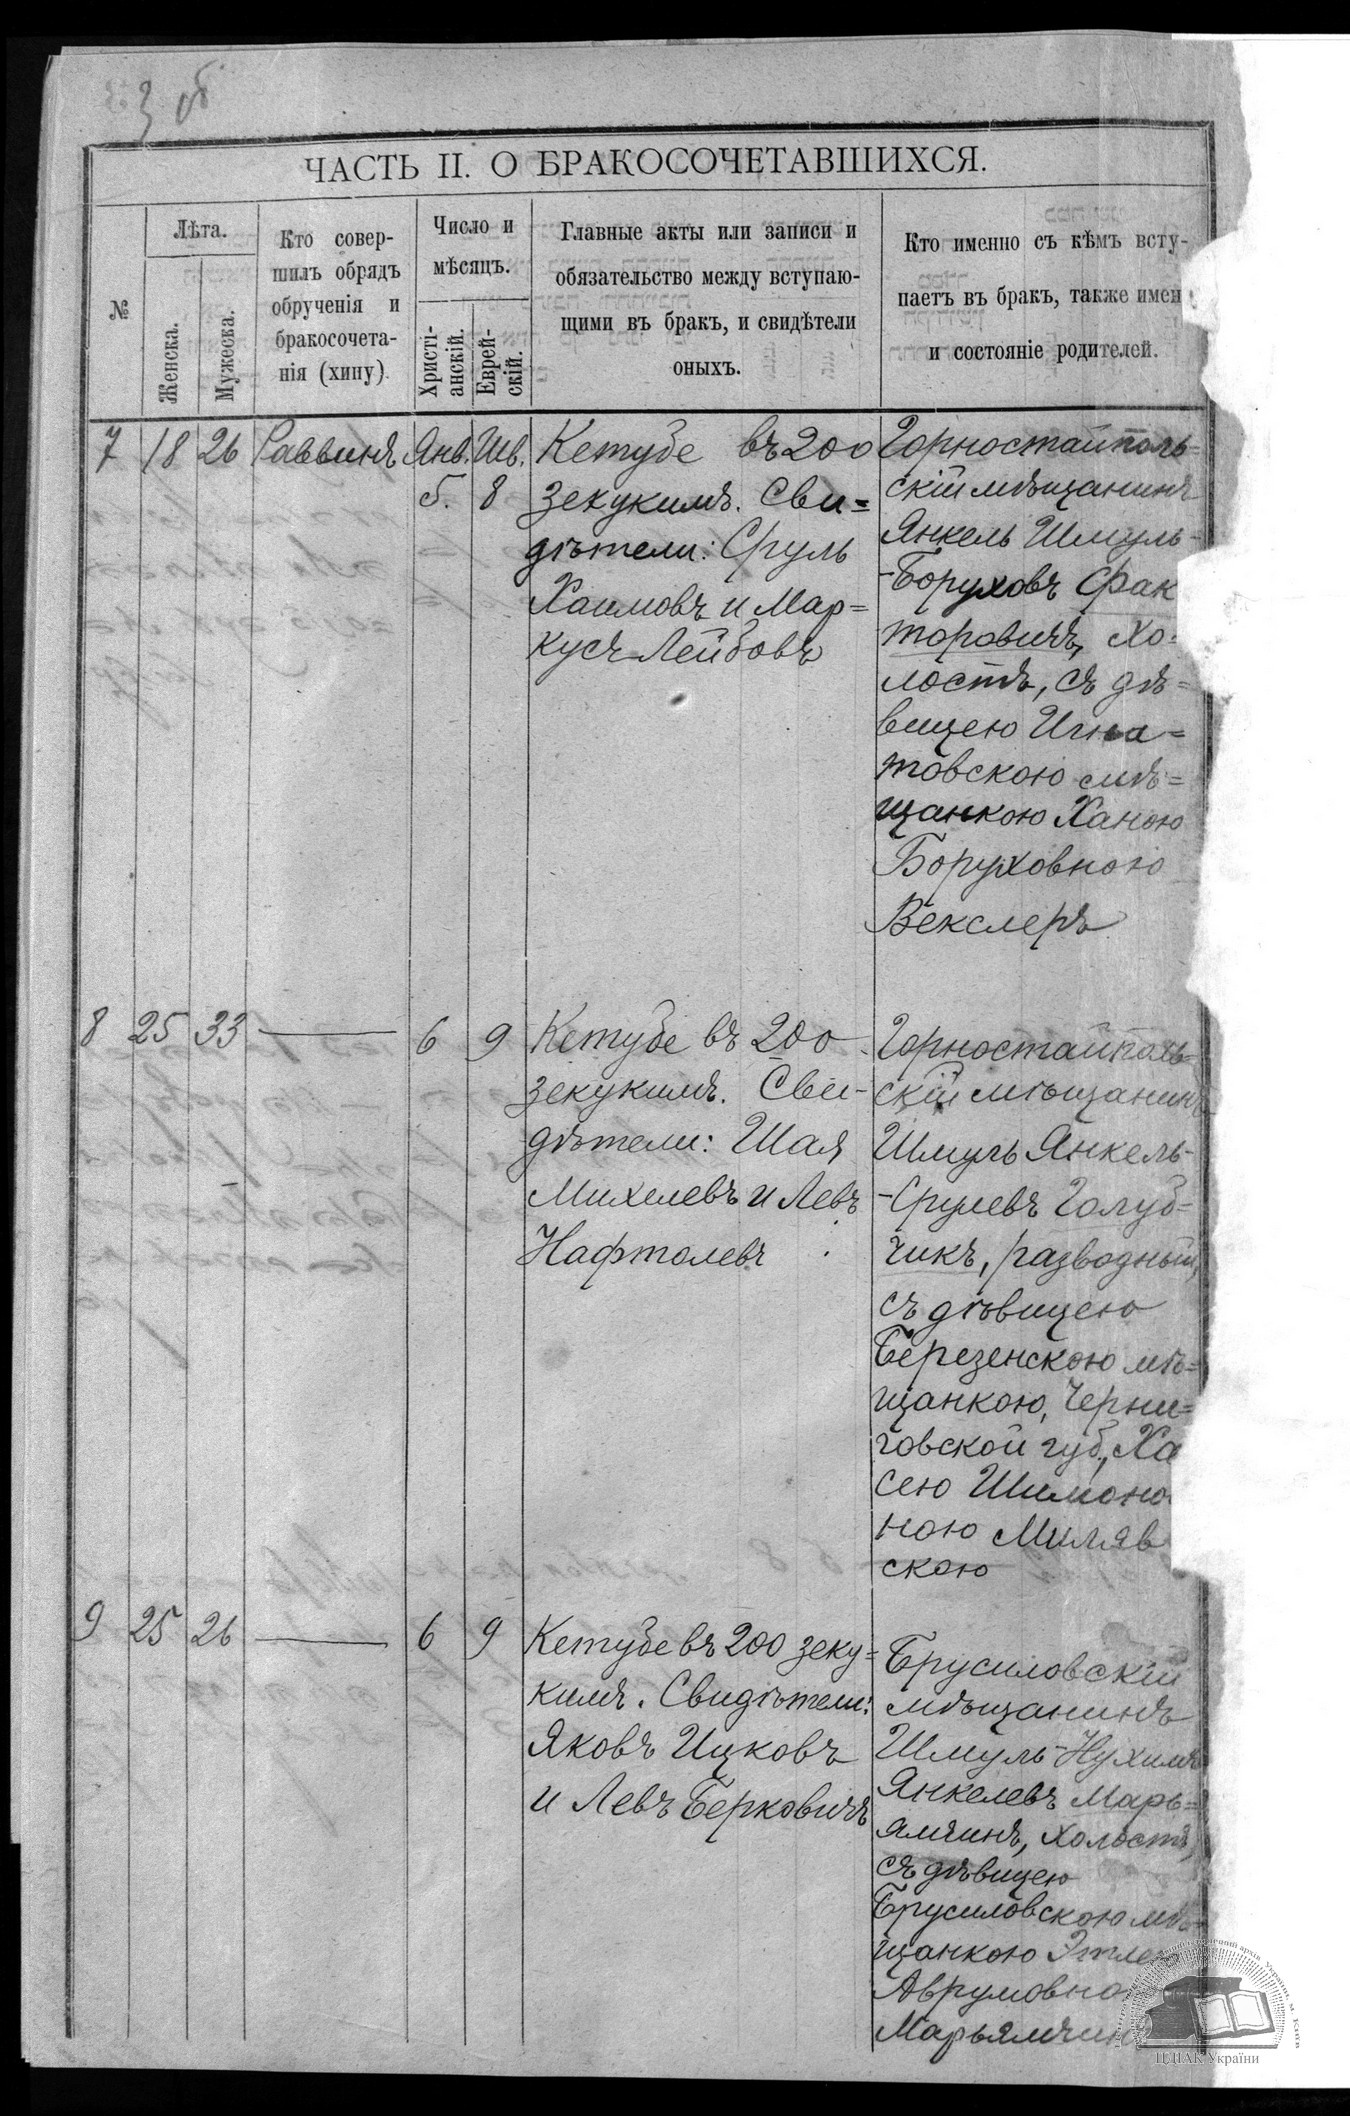 3 об
ЧАСТЬ II. О БРАКОСОЧЕТАВШИХСЯ.
№
Лѣта.
Женска.
Мужеска.
Кто совер-
шилъ обрядъ
обрученія и
бракосочета-
нія (хипу)
Число и
мѣсяцъ.
Христі-
анскій.
Еврей-
скій.
Главные акты или записи и
обязательство между вступаю-
щими въ бракъ, и свидѣтели
оныхъ.
Кто именно съ кѣмъ всту-
паетъ въ бракъ, также имен
и состояніе родителей.
7 18 26 Раввинъ Янв. Шв.
5. 8
Кетубе въ 200
зекукимъ. Сви=
дѣтели: Сруль
Хаимовъ и Мар=
кусъ Лейбовъ
Горностайполь=
скій мѣщанинъ
Янкель Шмуль-
-Боруховъ Фак
торовичъ, хо=
лостъ, съ дѣ=
вицею Игна=
товскою мѣ=
щанкою Ханою
Боруховною
Векслеръ
8 25 33 — 6 9
Кетубе въ 200
зекукимъ. Сви-
дѣтели: Шая
Михелевъ и Левъ
Нафтолевъ
Горностайполь=
скій мѣщанинъ
Шмуль Янкель-
-Срулевъ Голуб=
чикъ, разводный,
съ дѣвицею
Березенскою мѣ=
щанкою, Черни=
говской губ., Ха
сею Шимоно
ною Миляв
скою
9 25 26 — 6 9
Кетубе въ 200 зеку=
кимъ. Свидѣтели:
Яковъ Ицковъ
и Левъ Берковичъ
Брусиловскій
мѣщанинъ
Шмуль-Нухимъ
Янкелевъ Марь=
ямчинъ, холостъ,
съ дѣвицею
Брусиловскою мѣ=
щанкою Этлею
Аврумовно
Марьямчин
ЦДІАК України